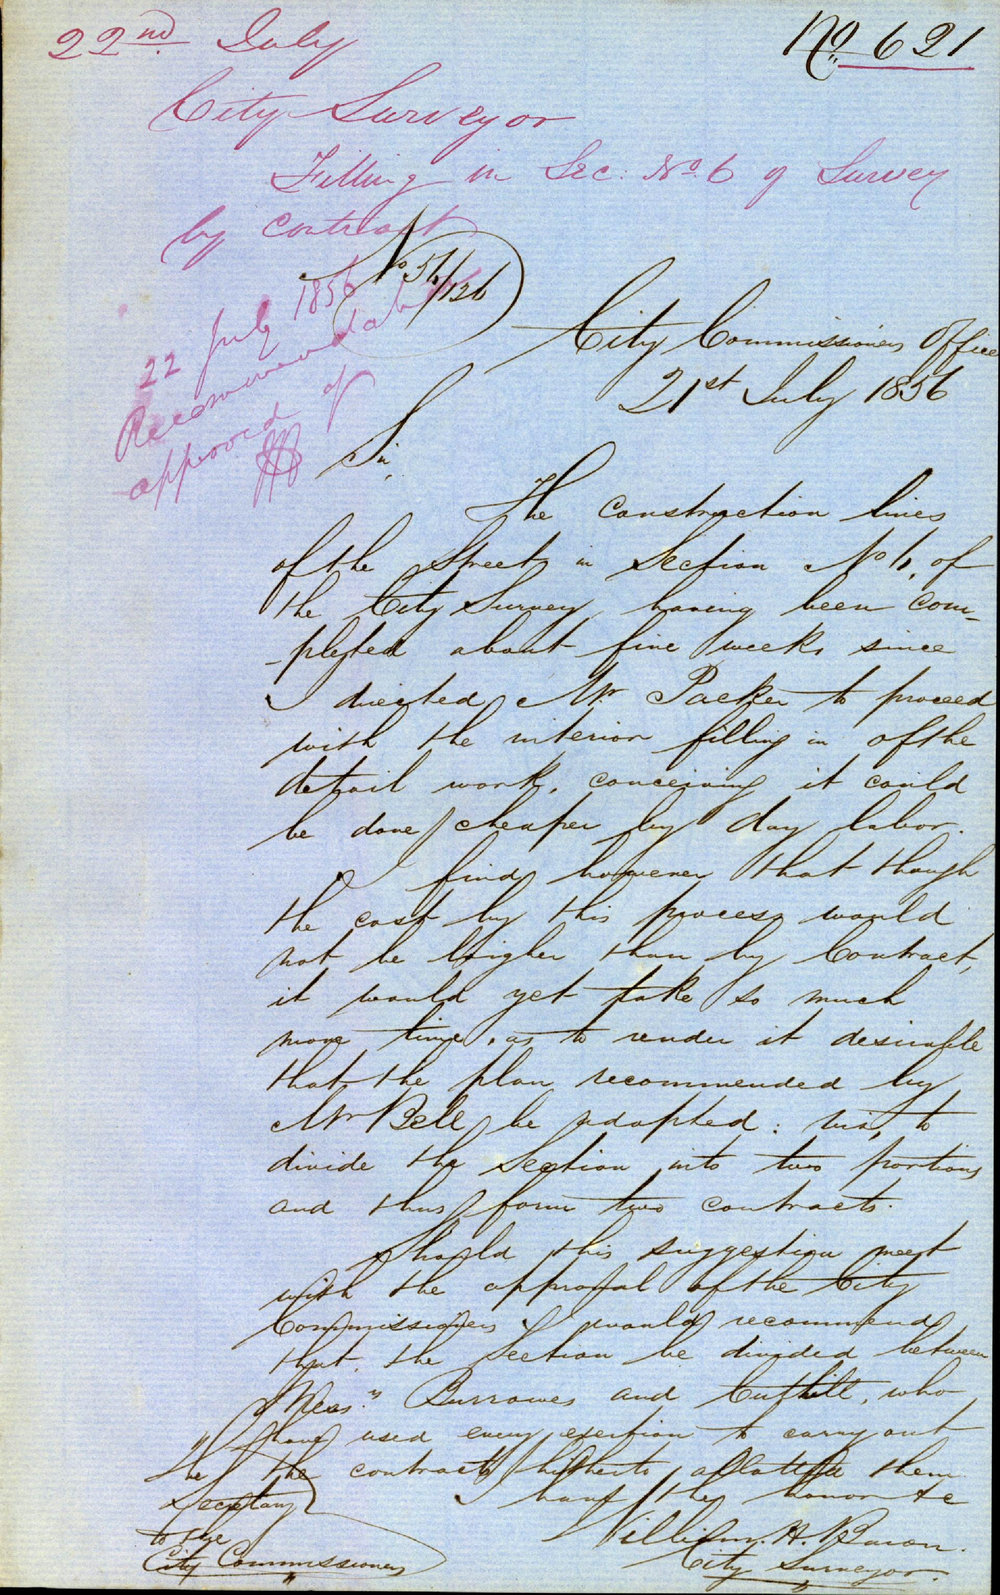 22nd July
No 621
City Surveyor
Filling in Sec: No. 6 of Survey
by contract
No 56/126
22 July 1856
Recommendation
approved of
City Commissioners Office
21st July 1856
Sir,
The Construction lines
of the Streets in Section No 6, of
the City Survey, having been com-
-pleted about five weeks since
I directed Mr. Packer to proceed
with the interior filling in of the
detail work, conceiving it could
be done cheaper by day labor.
I find however that though
the cost by this process would
not be higher than by Contract,
it would yet take so much
more time, as to render it desirable
that the plan recommended by
Mr Bell be adopted: viz, to
divide the Section into two portions
and thus form two contracts.
Should this suggestion meet
with the approval of the City
Commissioners I would recommend
that the Section be divided between
Mess.rs Burrowes and Cuthill, who
have used every exertion to carry out
the contracts hitherto allotted them
I have the honor &c
William. H. Baron.
City Surveyor.
The
Secretary
to the
City Commissioners